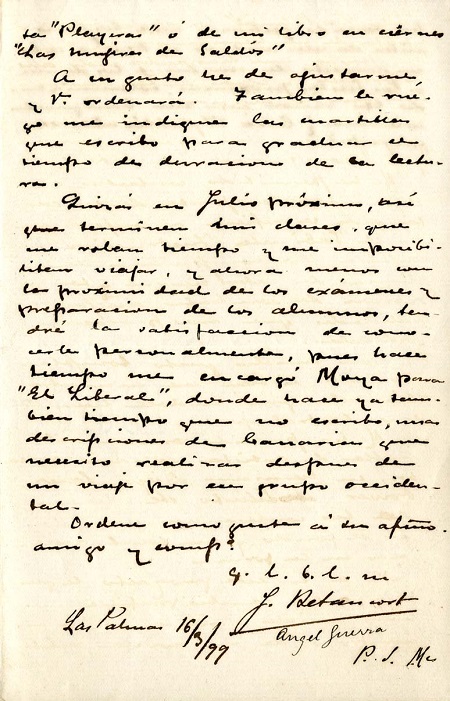 ta "Playeras" ó de mi libro en ciérnes
"Las mujeres de Galdós"
A su gusto he de ajustarme,
y V. ordenará. Tambien le rue-
go me indique las cuartillas
que escribo para graduar el
tiempo de duracion de la lectu-
ra.
Quizás en Julio próximo, así
que terminen mis clases, que
me roban tiempo y me imposibi-
litan viajar, y ahora menos con
la proximidad de los exámenes y
preparacion de los alumnos, ten-
dré la satisfaccion de cono-
cerle personalmente, pues hace
tiempo me encargó Moya para
"El Liberal", donde hace ya tam-
bien tiempo que no escribo, unas
descripciones de Canarias que
necesito realizar despues de
un viaje por ese grupo occiden-
tal.
Ordene como guste á su afmo.
amigo y compº
q. l. b. l. m
J. Betancort
Angel Guerra
Las Palmas 16/3/99